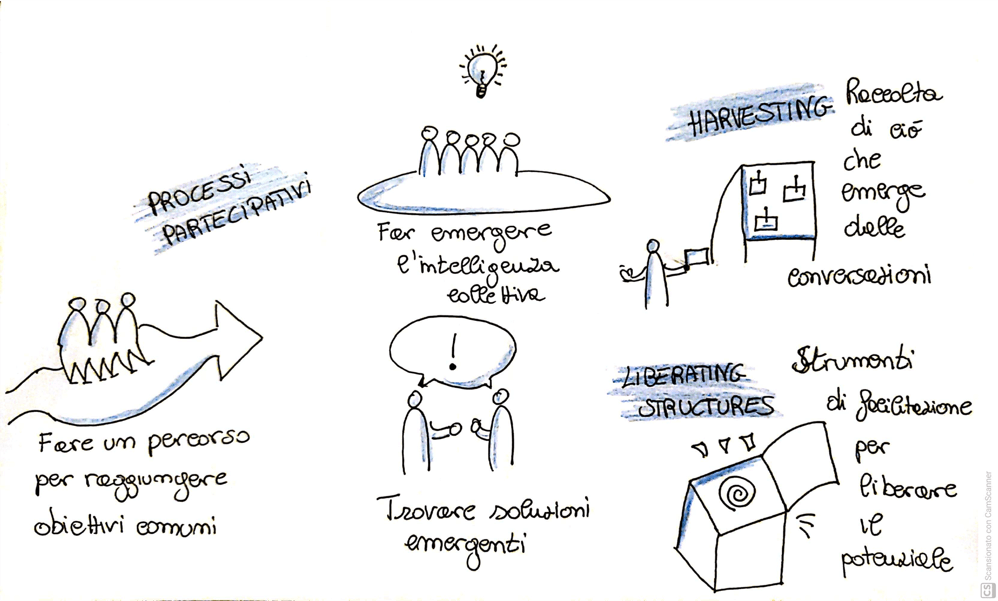 PROCESSI
PARTECIPATIVI
Fare un percorso
per raggiungere
obiettivi comuni
Far emergere
l'intelligenza
collettiva
Trovare soluzioni
emergenti
HARVESTING
Raccolta
di ciò
che
emerge
dalle
conversazioni
LIBERATING
STRUCTURES
Strumenti
di facilitazione
per
liberare
il
potenziale
CS Scansionato con CamScanner